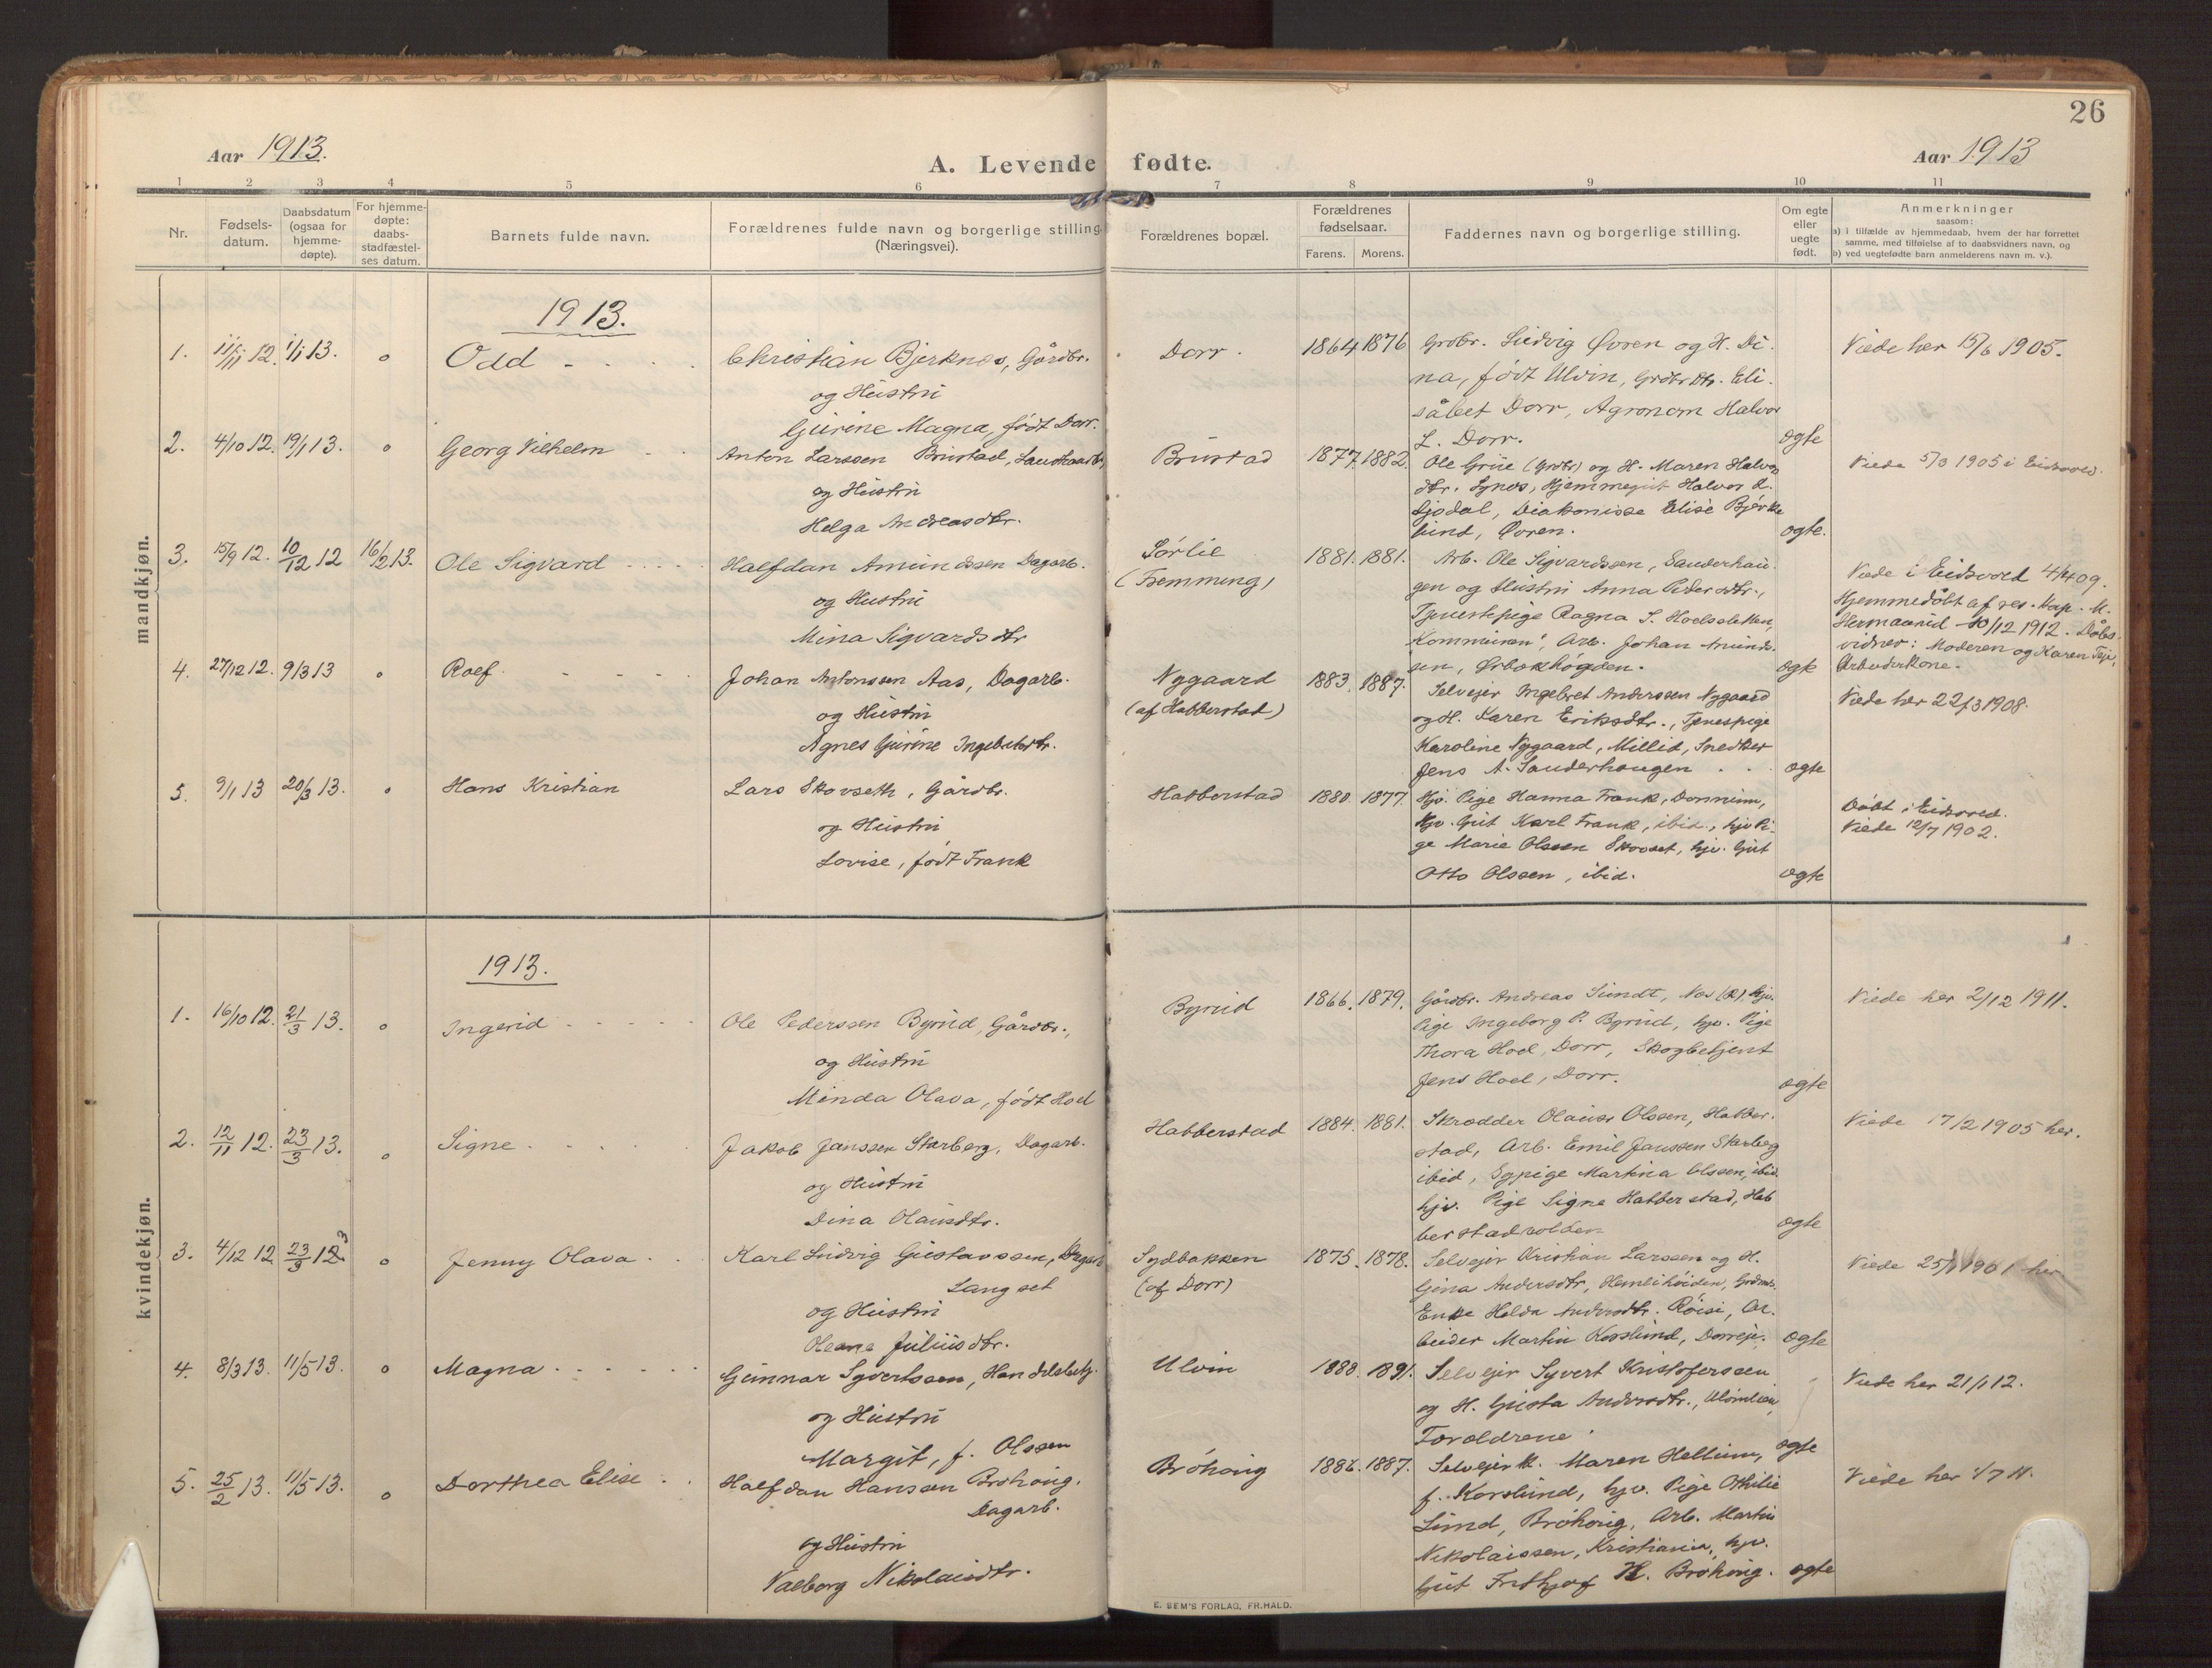 26
Aar 1913.
A. Levende fødte.
Aar 1913
1 2 3 4 5 6 7 8 9 10 11
Nr.
Fødsels-
datum.
Daabsdatum
(ogsaa for
hjemme-
døpte).
For hjemme-
døpte:
daabs-
stadfæstel-
ses datum.
Barnets fulde navn.
Forældrenes fulde navn og borgerlige stilling
(Næringsvei).
Forældrenes bopæl.
Forældrenes
fødselsaar.
Farens. Morens.
Faddernes navn og borgerlige stilling.
Om egte
eller
uegte
født.
Anmerkninger
saasom:
a) i tilfælde av hjemmedaab, hvem der har forrettet
samme, med tilføielse af to daabsvidners navn, og
b) ved uegtefødte barn anmelderens navn m. v.).
mandkjøn.
1913.
1. 11/11 12. 1/1 13. o Odd
Christian Bjerknæs, Gårdbr.
og Hustru
Gurine Magna, født Dorr.
Dorr. 1864 1876
Grdbr. Ludvig Øvren og H. Di-
na, født Ulvin, Grdbr.dtr. Eli-
såbet Dorr, Agronom Halvor
L. Dorr.
ægte
Viede her 15/6 1905.
2. 4/10 12. 19/1 13. o Georg Vilhelm
Anton Larssen Brustad,
og Hustru
Helga Andreasdtr.
Brustad 1877. 1882.
Ole Grue (Grdbr) og H. Maren Halvor
dtr. Synes, Hjemmegut Halvor L.
Diakonisse Elise Bjørke
lund, Øvren.
ægte.
Viede 5/3 1905 i Eidsvold.
3. 15/9 12. 10/12 12 16/2 13. Ole Sigvard
Halfdan Amundssen Dagarb.
og Hustru
Mina Sigvardsdtr
Sørlie 1881. 1881.
(Fremming)
Arb. Ole Sigvardssen, Sanderhau-
gen og Hustru Anna Pedersdtr.,
Tjenestepige Ragna S. Hoelsletten,
Arb. Johan Amunds-
sen, Ørbækhøgden.
ægte
Viede i Eidsvold 4/4 09.
Hjemmedøbt af res. Kap. M.
Hermanrud 10/12 1912. Dåbs-
vidner: Moderen og Karen
Arbeiderkone.
4. 27/12 12. 9/3 13 o Rolf
Johan Antonssen Aas, Dagarb.
og Hustru
Agnes Gurine Ingebretsdtr.
Nygaard 1883. 1887.
(af Habberstad)
Selvejer Ingebret Anderssen Nygaard
og H. Karen Eriksdtr., Tjenespige
Karoline Nygaard, Millid, Snedker
Jens A. Sanderhaugen
ægte
Viede her 22/3 1908.
5. 9/1 13 20/3 13. o Hans Kristian
Lars Skovseth, Gårdbr.
og Hustru
Lovise, født Frank
Habberstad 1880. 1877.
Hjv. Pige Hanna Frank,
Hjv. Gut Karl Frank, ibid., hjv Pi-
ge Marie Olssen Skovset, hjv. Gut
Otto Olssen, ibid.
ægte
Døbt i Eidsvold.
Viede 12/7 1902.
kvindekjøn.
1913.
1. 16/10 12. 21/3 13. o Ingerid
Ole Pederssen Byrud, Gårdbr.,
og Hustru
Minda Olava, født Hoel
Byrud 1866. 1879.
Gårdbr. Andreas Sundt, Nes (R), hjv.
Pige Ingeborg P. Byrud, hjv. Pige
Thora Hoel, Dorr, Skogbetjent
Jens Hoel, Dorr.
ægte
Viede her 2/12 1911.
2. 12/11 12. 23/3 13. o Signe
Jakob Janssen Starberg, Dagarb.
og Hustru
Dina Olausdtr.
Habberstad 1884. 1881.
Skrædder Olaus Olssen, Habber-
stad, Arb. Emil Janssen Starberg
ibid, Sypige Martina Olssen, ibid.
hjv. Pige Signe Habberstad, Hab
berstadvolden
ægte
Viede 17/2 1905 her.
3. 4/12 12. 23/3 13 o Jenny Olava
Karl Ludvig Gustavssen, Dagarb
Langset
og Hustru
Oleane Juliusdtr.
Sydbakken 1875. 1878.
(af Dorr)
Selvejer Kristian Larssen og H.
Gina Andersdtr,
Enke Helda Andersdtr. Røisi, Ar-
beider Martin Korslund, Dorreje.
ægte
Viede 25/ 1901 her
4. 8/3 13. 11/5 13. o Magna
Gunnar Syvertssen, Handelsbetj.
og Hustru
Margit, f. Olssen
Ulvin 1888. 1891.
Selvejer Syvert Kristoferssen
og H. Gusta Andersdtr.,
Forældrene
ægte
Viede her 21/1 12.
5. 25/2 13. 11/5 13. o Dorthea Elise
Halfdan Hansen Brøhaug.
Dagarb.
og Hustru
Valborg Nikolaisdtr.
Brøhaug 1886. 1887.
Selvejer k. Maren Hellum,
f. Korslund, hjv. Pige Othilie
Lund, Brøhaug, Arb. Martin
Nikolaissen, Kristiania, hjv.
Gut Frithjof H. Brøhaug.
ægte
Viede her 1/7 11.
E. SEM'S FORLAG, FR.HALD.